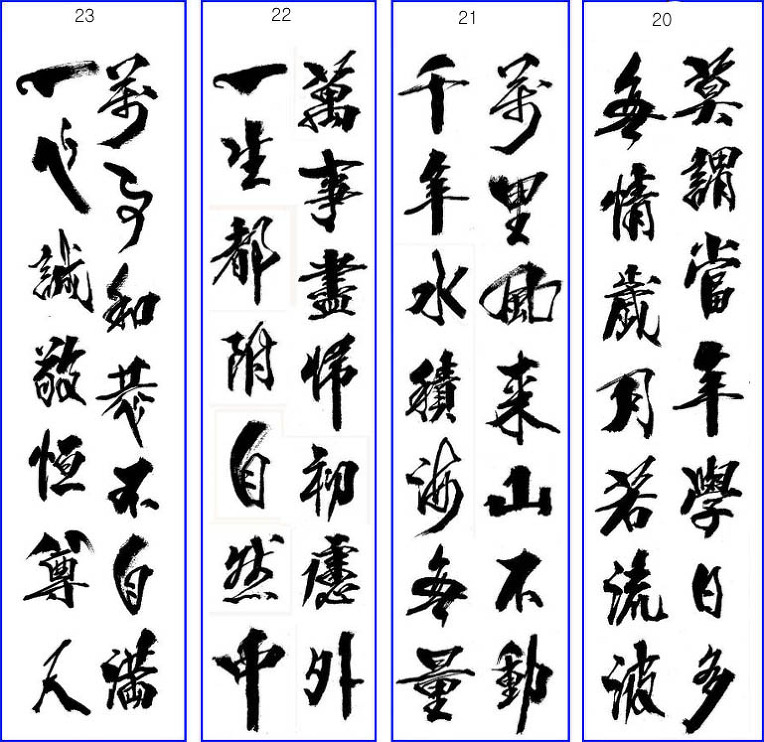 20
莫謂當年學日多
無情歲月若流波
21
萬里風来山不動
千年水積海無量
22
萬事盡歸初慮外
一生都附自然中
23
萬事和恭不自滿
一心誠敬恒尊人